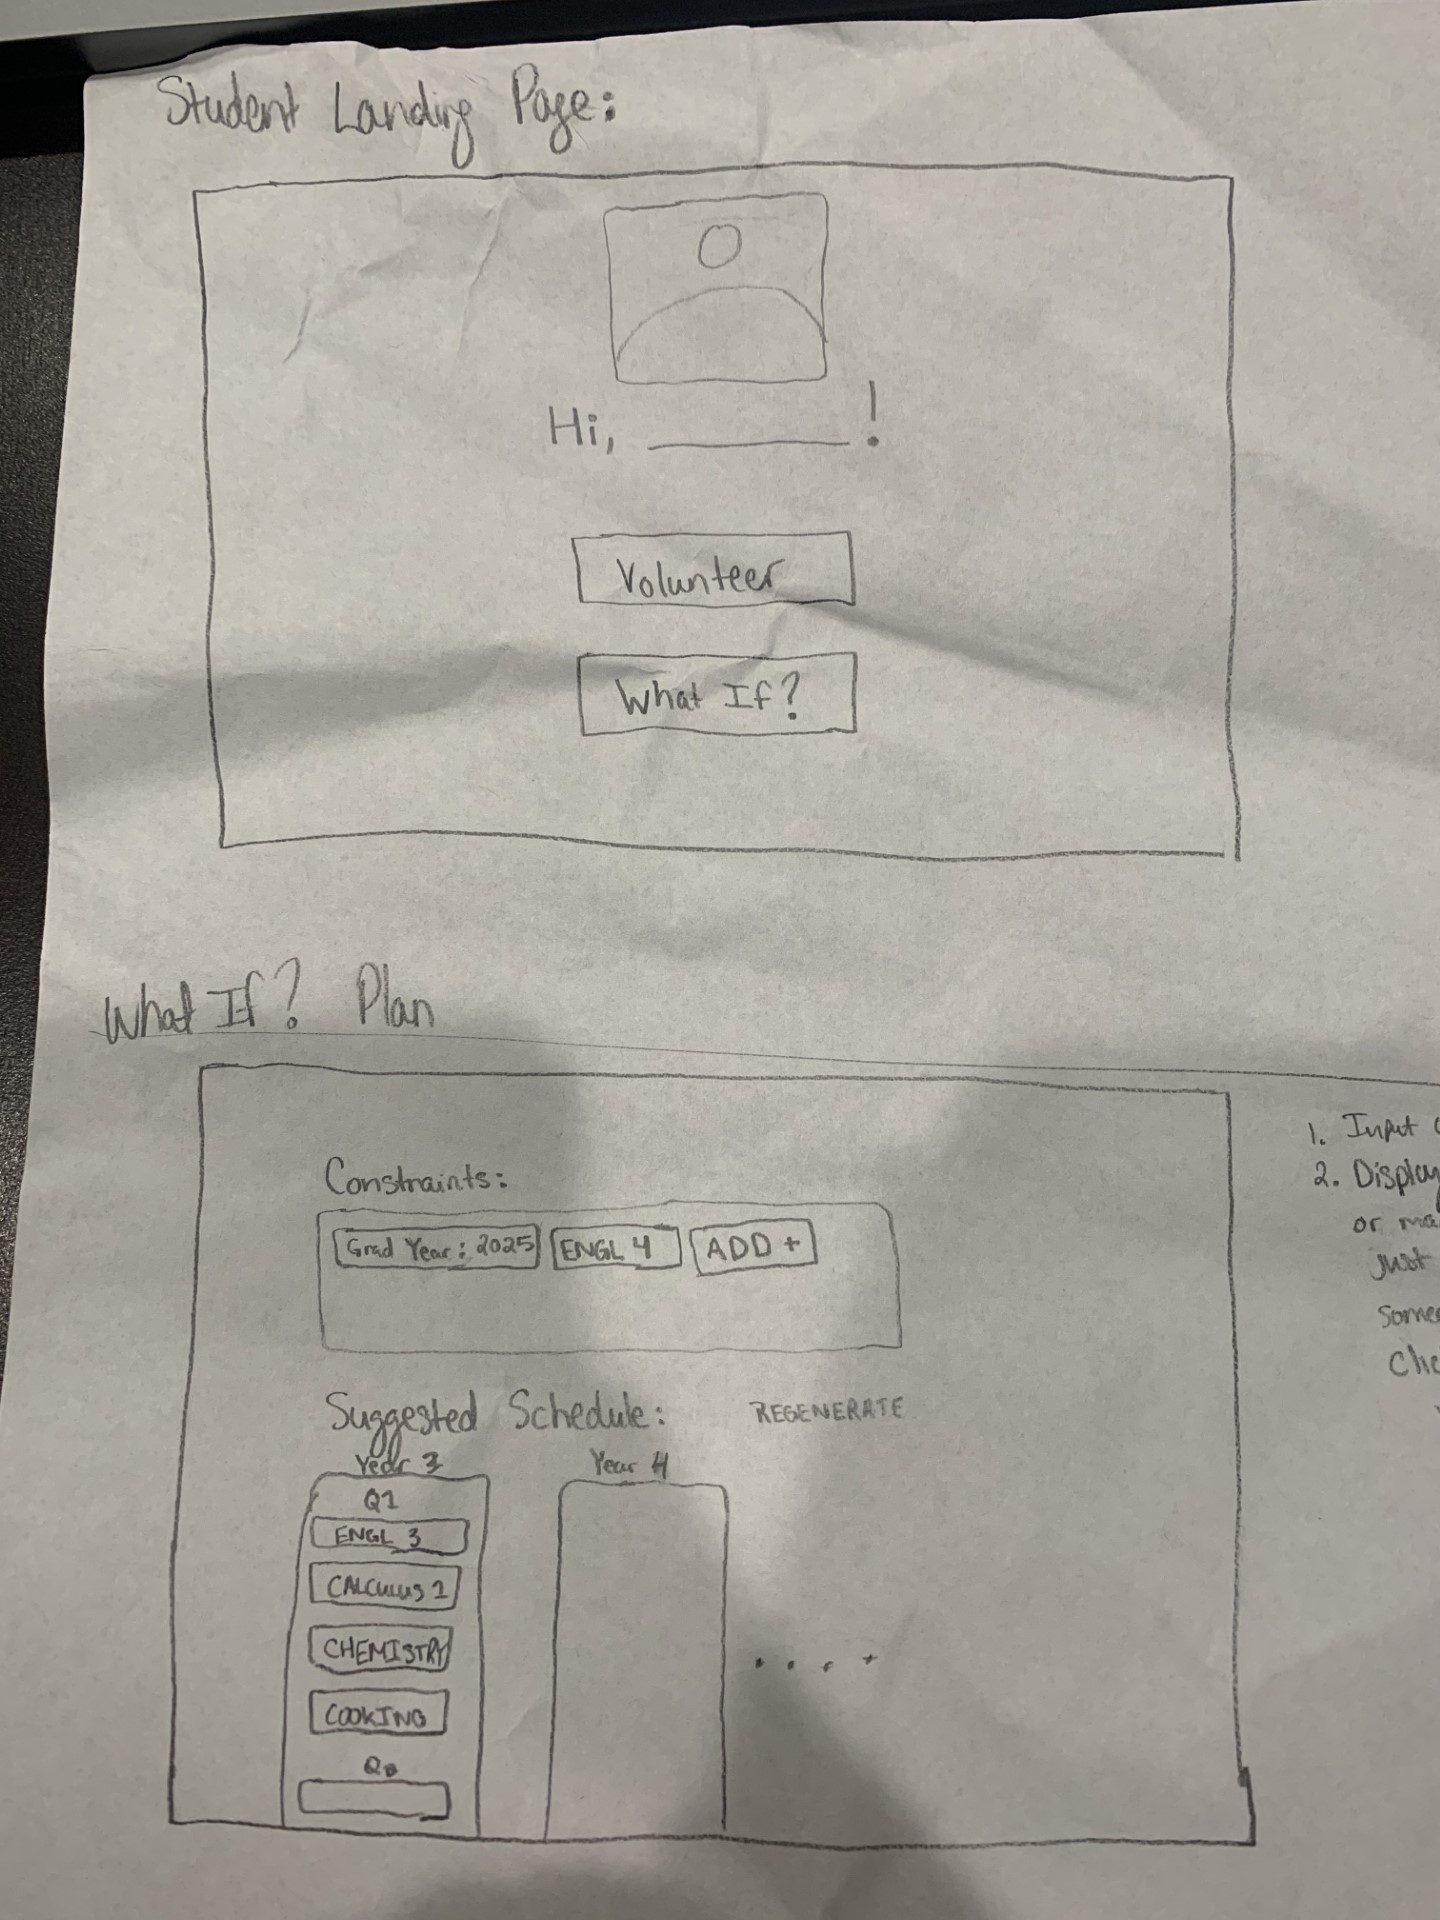 Student Landing Page:
Hi, ________ !
Volunteer
What If?
What If? Plan
Constraints:
Grad Year: 2025 ENGL 4 ADD +
Suggested Schedule: REGENERATE
Year 3 Year 4
Q1
ENGL 3
CALCULUS 1
CHEMISTRY
COOKING
. . . .
1. Input
2. Display
or
just